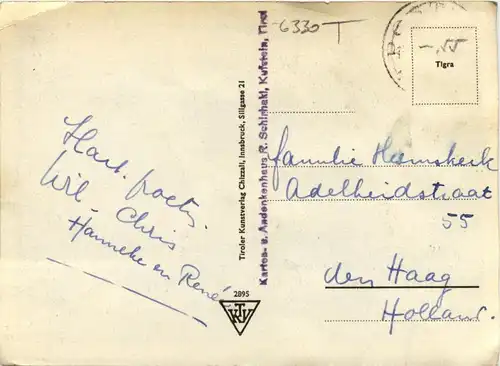 Hart. groeten.
Wil - Chris
Hanneke en René
Tiroler Kunstverlag Chizzali, Innsbruck, Sillgasse 21
Karten- u. Andenkenhaus R. Schirhakl, Kufstein, Tirol
2895
KTV
6330 T
-.55
Tigra
familie Heemskerk
Adelheidstraat
55
den Haag
Holland.